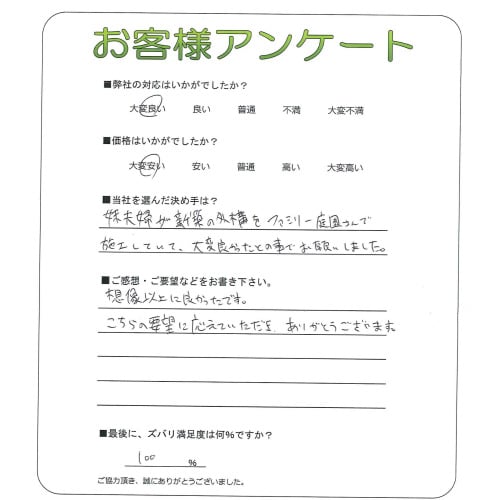 お客様アンケート
■弊社の対応はいかがでしたか？
大変良い 良い 普通 不満 大変不満
■価格はいかがでしたか？
大変安い 安い 普通 高い 大変高い
■当社を選んだ決め手は？
妹夫婦が新築の外構をファミリー庭園さんで
施工していて、大変良かったとの事でお願いしました。
■ご感想・ご要望などをお書き下さい。
想像以上に良かったです。
こちらの要望に応えていただき、ありがとうございます。
■最後に、ズバリ満足度は何％ですか？
100 ％
ご協力頂き、誠にありがとうございました。